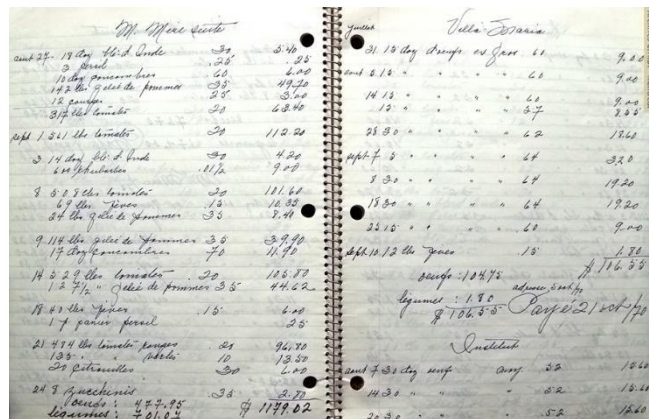 M. Mère suite
août 27 - 18 doz blé-d'Inde 30 5.40
3 persil .25 .25
10 doz concombres 60 6.00
142 lbs gelée de pommes 35 49.70
12 courges 25 3.00
317 lbs tomates 20 63.40
sept 1. 561 lbs tomates 20 112.20
3 14 doz blé-d'Inde 30 4.20
600 rhubarbes .01½ 9.00
8 508 lbs tomates 20 101.60
69 lbs fèves .15 10.35
24 lbs gelée de pommes 35 8.40
9. 114 lbs gelée de pommes 35 39.90
17 doz concombres 70 11.90
14 529 lbs tomates .20 105.80
127½ " gelée de pommes 35 44.62
18 40 lbs fèves .15 6.00
1 p panier persil 25
21 484 lbs tomates rouges 20 96.80
135 " " vertes 10 13.50
20 citrouilles 30 6.00
24 8 zucchinis .35 2.80
oeufs : 477.95 $ 1179.02
légumes : 701.07
juillet Villa
31 15 doz d'oeufs ex gros 60 9.00
août 5 15 " " " 60 9.00
14 15 " " " 60 9.00
15 " " " 57 8.55
28 30 " " " 62 18.60
sept 7 5 " " " 64 3.20
8 30 " " " 64 19.20
18 30 " " " 64 19.20
25 15 " " " 60 9.00
sept. 10. 12 lbs fèves .15 1.80
$ 106.55
oeufs : 104.75
légumes : 1.80
$ 106.55 Payé 21 oct/70
Institut
août 7 30 doz oeuf moy. 52 15.60
14 30 " " " 52 15.60
20 30 " " 52 15.60